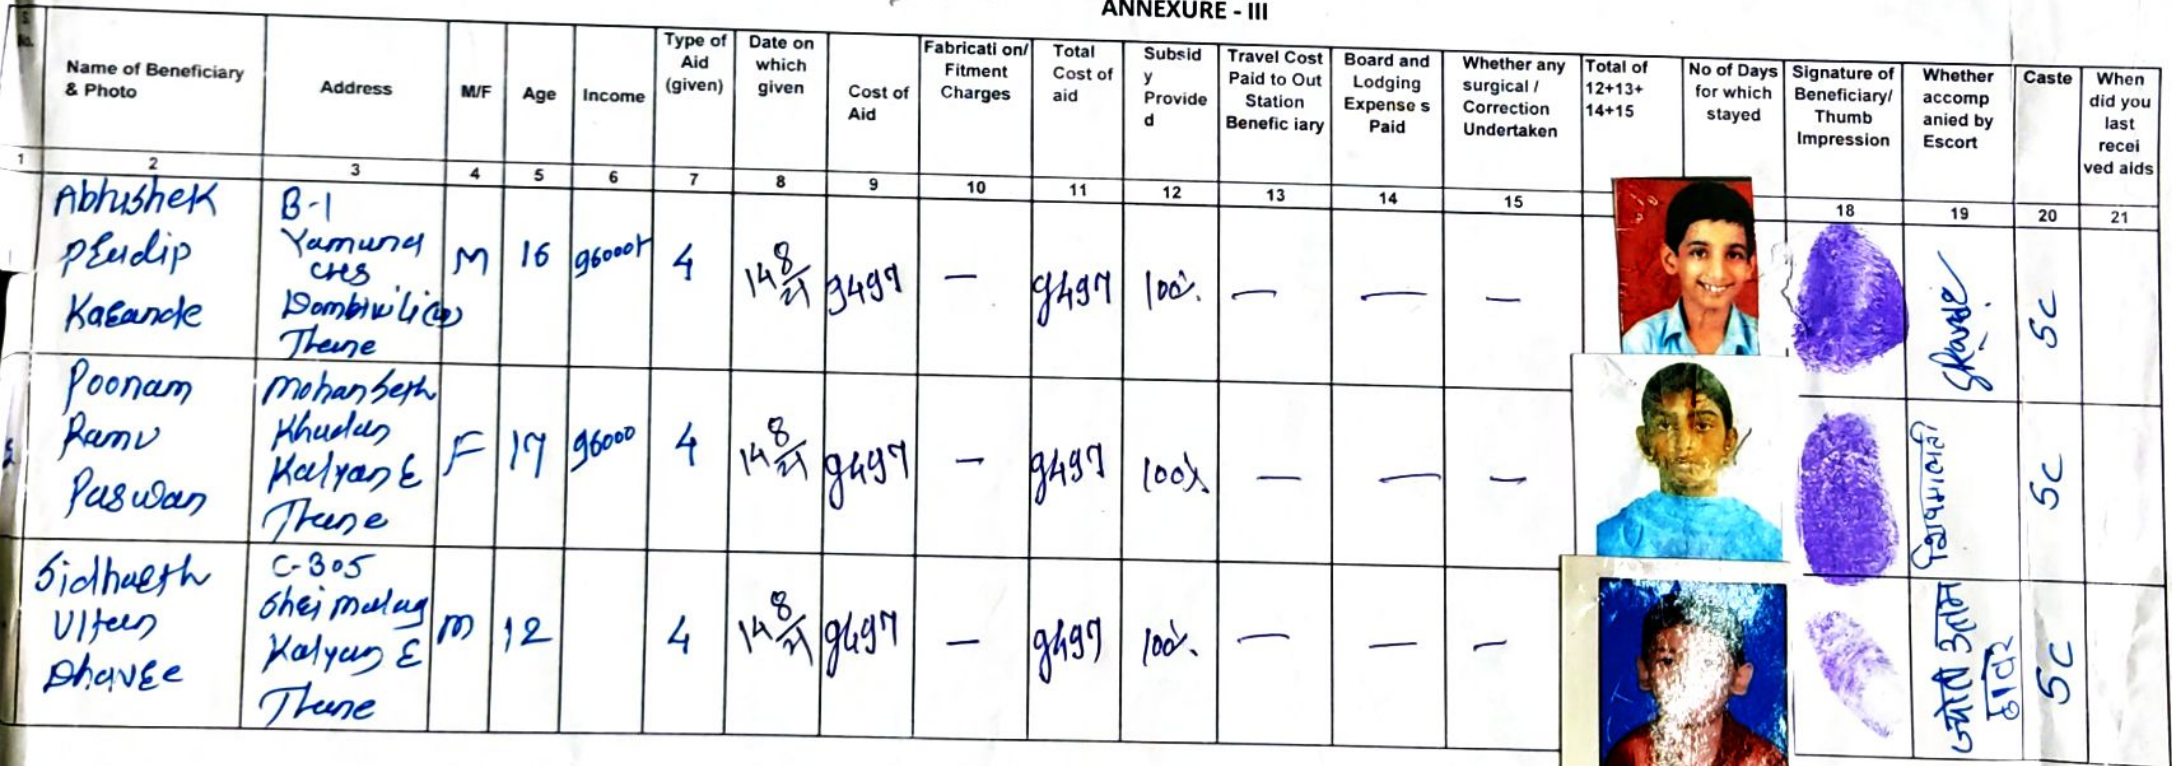 ANNEXURE - III
Name of Beneficiary
& Photo
Address
M/F
Age
Income
Type of
Aid
(given)
Date on
which
given
Cost of
Aid
Fabricati on/
Fitment
Charges
Total
Cost of
aid
Subsid
y
Provide
d
Travel Cost
Paid to Out
Station
Benefic iary
Board and
Lodging
Expense s
Paid
Whether any
surgical /
Correction
Undertaken
Total of
12+13+
14+15
No of Days
for which
stayed
Signature of
Beneficiary/
Thumb
Impression
Whether
accomp
anied by
Escort
Caste
When
did you
last
recei
ved aids
1 2 3 4 5 6 7 8 9 10 11 12 13 14 15 18 19 20 21
Abhishek
B-1
Yamuna
Dombivili (w)
Thane
M
16
96000
4
14 8/21
9497
—
9497
100%
—
—
—
SC
Poonam
Ramu
Paswan
Mohan Seth
Khadan
Kalyan E
Thane
F
17
96000
4
14 8/21
9497
—
9497
100%
—
—
—
SC
Sidharth
Dhavre
C-305
Kalyan E
Thane
M
12
4
14 8/21
9497
—
9497
100%
—
—
—
SC